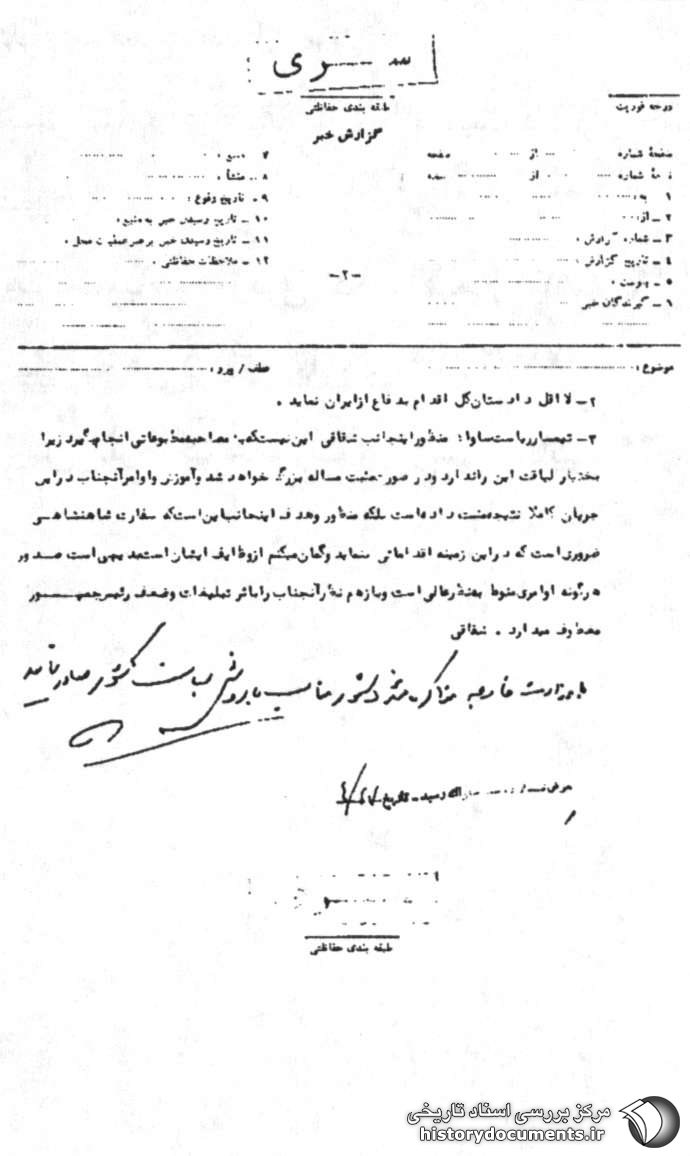 سری
طبقه بندی حفاظتی
درجه فوریت
گزارش خبر
صفحهٔ شماره از صفحه
شماره از
۱ به:
۲ ـ از:
۳ ـ شماره گزارش:
۴ ـ تاریخ گزارش:
۵ ـ پیوست:
گیرندگان خبر
۷ منبع:
۸ ـ منشأ:
۹ ـ تاریخ وقوع:
۱۰ ـ تاریخ رسیدن خبر به منبع:
۱۱ ـ تاریخ رسیدن خبر برهبر عملیات محل:
۱۲ ـ ملاحظات حفاظتی:
-۲-
موضوع:
عطف / پیرو:
۲ـ لااقل دادستان کل اقدام بدفاع از ایران نماید.
۳ـ تیمسار ریاست ساواک منظور اینجانب شقاقی این نیست که مصاحبه مطبوعاتی انجام گیرد زیرا
بختیار لیاقت این را ندارد و در صورت مثبت مساله بزرگ خواهد شد و آموزش و اوامر آنجناب در این
جریان کاملا نتیجه مثبت داده است بلکه منظور و هدف اینجانب این است که سفارت شاهنشاهی
ضروری است که در این زمینه اقداماتی بنماید و گمان میکنم از وظایف ایشان است بدیهی است صدور
هرگونه اوامری منوط بنظر عالی است و باز هم نظر آنجناب را باثر تبلیغات و ضعف رئیس جمهور
معطوف میدارد. شقاقی
با وزارت خارجه مذاکره شد دستور مناسب با روش سیاست کشور صادر نمایند
رسید ـ تاریخ
طبقه بندی حفاظتی
مرکز بررسی اسناد تاریخی
historydocuments.ir